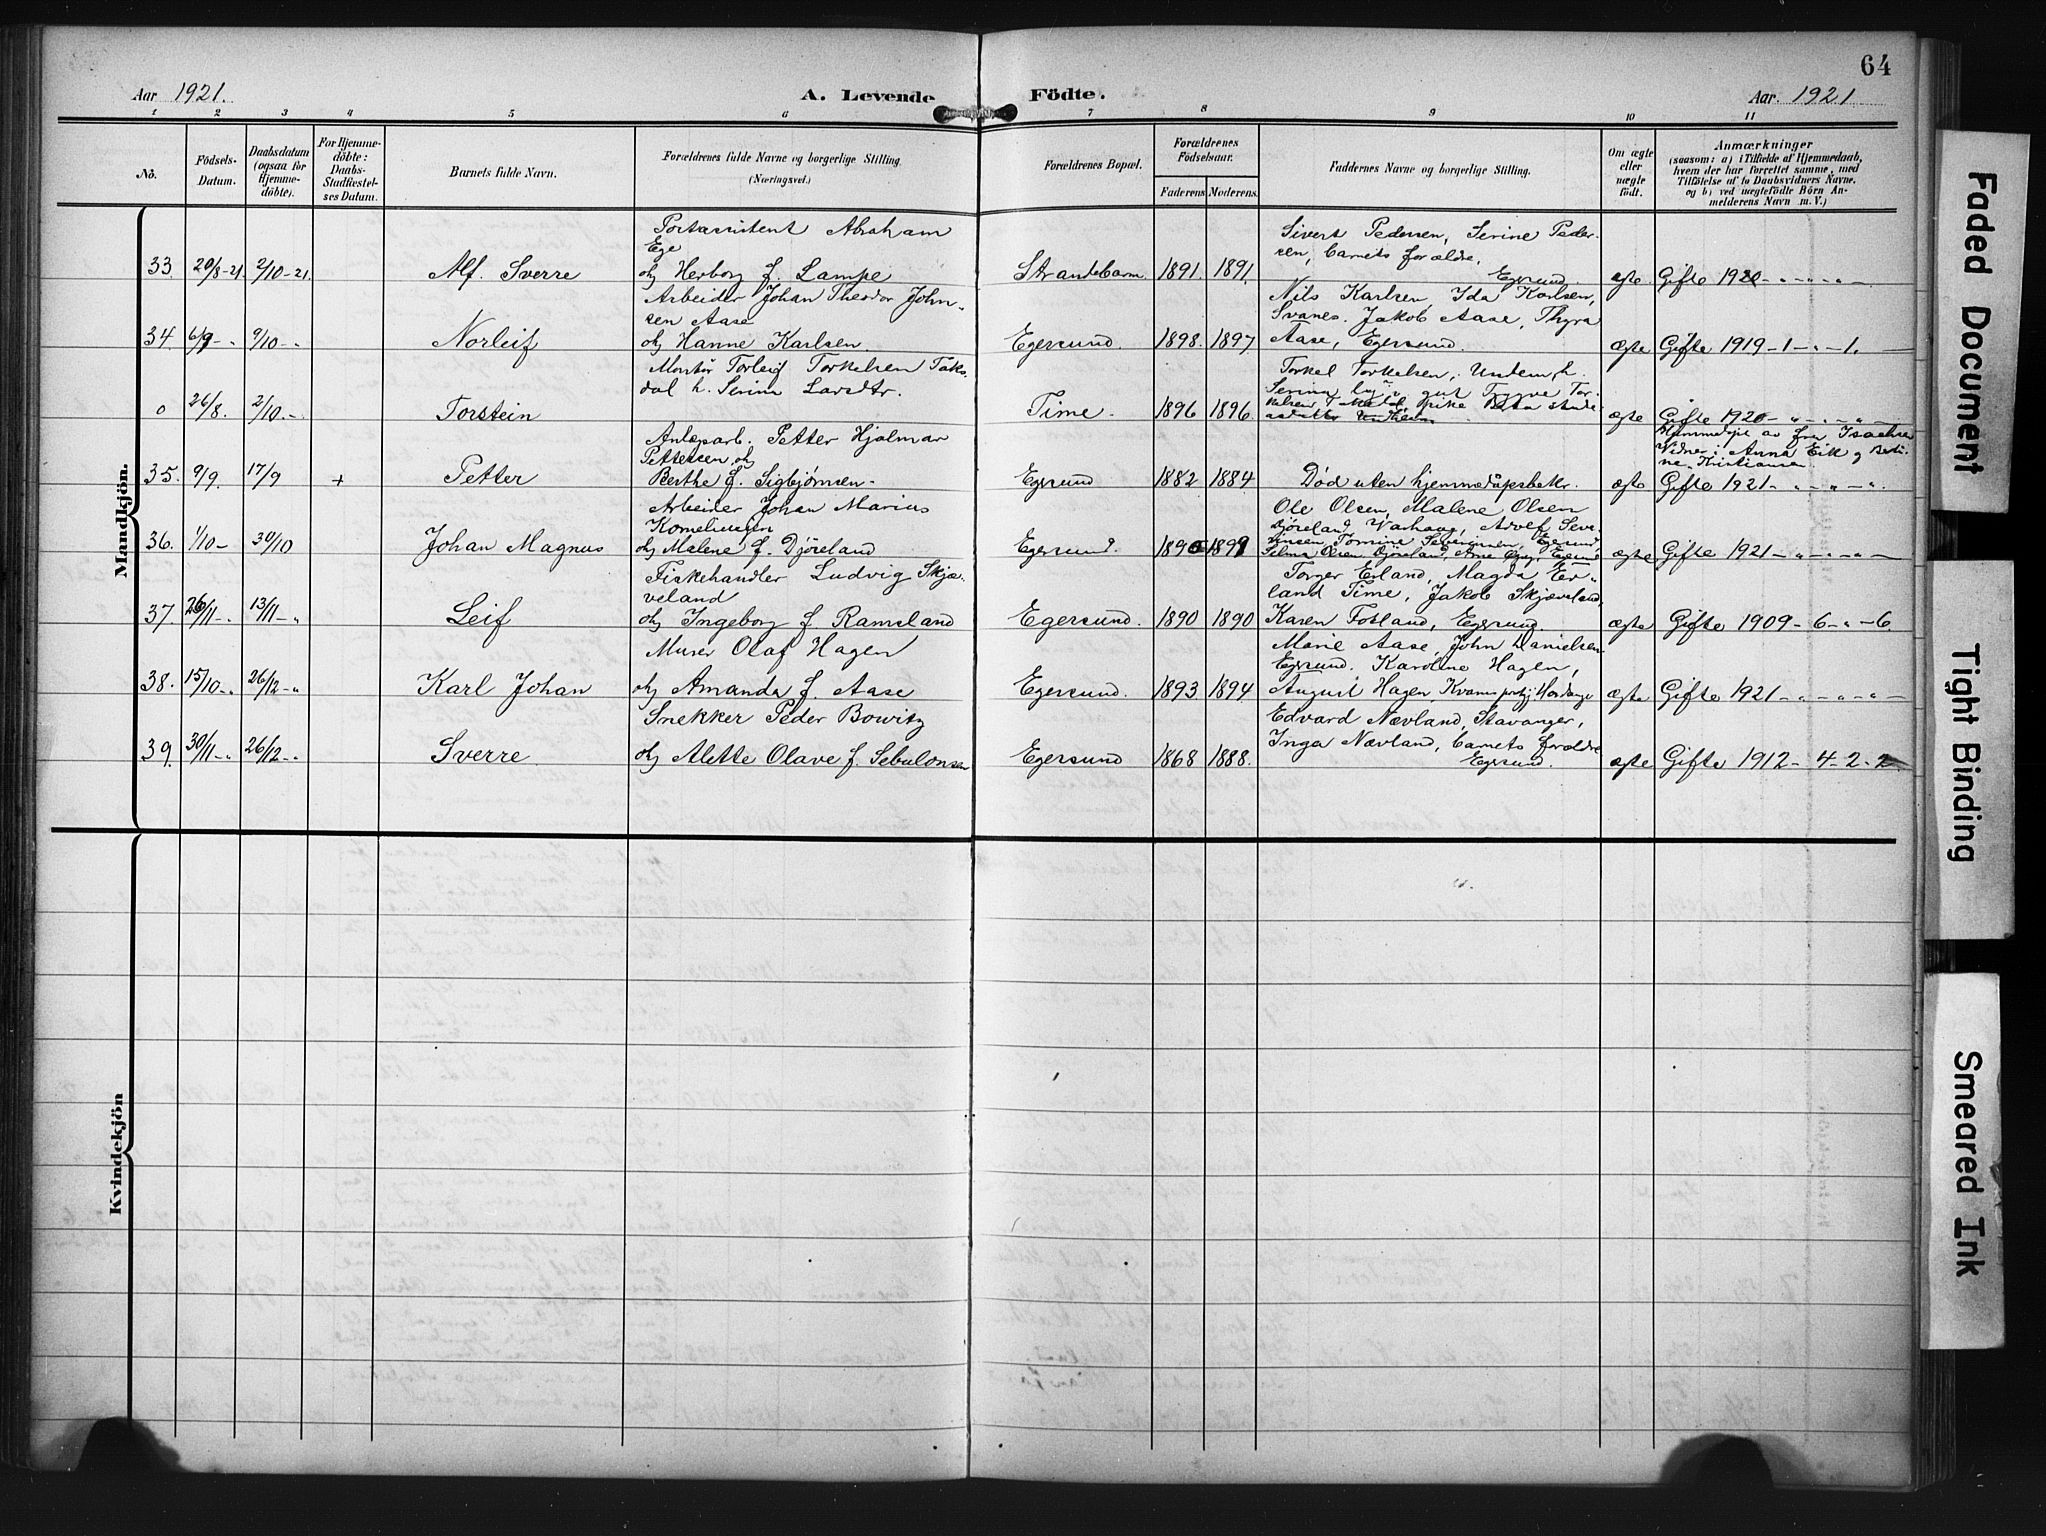 64
Aar 1921.
A. Levende Födte.
Aar 1921
1 2 3 4 5 6 7 8 9 10 11
No.
Födsels-Datum.
Daabsdatum (ogsaa for Hjemme-döbte).
For Hjemme-döbte: Daabs-Stadfæstel-ses Datum.
Barnets fulde Navn.
Forældrenes fulde Navne og borgerlige Stilling. (Næringsvei.)
Forældrenes Bopæl.
Forældrenes Födselsaar.
Faderens Moderens.
Faddernes Navne og borgerlige Stilling.
Om ægte eller uægte født.
Anmærkninger
(saasom: a) i Tilfælde af Hjemmedaab,
hvem der har forrettet samme, med
Tilföielse af to Daabsvidners Navne.
og b) ved uægtefödte Börn An-
melderens Navn m. V.)
Mandkjön.
Postassistent Abraham
Ege
33. 20/8-21. 2/10-21. Alf. Sverre og Herborg f. Lampe Strandebarm 1891. 1891.
Sivert Pedersen, Serine Peder-
sen, barnets forældre,
Egersund. ægte. Gifte 1920
Arbeider Johan Theodor John-
sen Aase
34. 6/9 - 9/10 - Norleif og Hanne Karlsen. Egersund. 1898. 1897
Nils Karlsen, Ida Karlsen,
Svanes. Jakob Aase, Thyra
Aase, Egersund. ægte Gifte 1919-1-"-1.
Montør Torleif Torkelsen Taks-
dal h. Serine Larsdtr.
0 26/8. 2/10.- Torstein Time. 1896 1896.
Torkel Torkelsen, Undem, h.
Serina, ægte Gifte 1920
Anlægsarb. Petter Hjalmar
Pettersen og
35. 9/9. 17/9 + Petter Berthe f. Sigbjørnsen Egersund 1882 1884. Død uten hjemmedaapsbekr. ægte
Hjemmedøpt av fru Isachsen
Vidner: Anna Eik og Berti-
ne Kristiansen.
Gifte 1921
Arbeider Johan Marius
Korneliussen
36. 1/10- 30/10 Johan Magnus og Malene f. Djøreland Egersund.
Ole Olsen, Malene Olsen
Djøreland, Varhaug,
Selma Olsen Djøreland, ægte Gifte 1921
Fiskehandler Ludvig Skjæ-
veland
37. 26/11- 13/11- Leif og Ingeborg f. Ramsland Egersund. 1890 1890
Torger Erland, Magda Er-
land Time, Jakob Skjæveland,
Karen Fotland, Egersund. ægte Gifte 1909-6-"-6.
Murer Olaf Hagen
38. 15/10- 26/12- Karl Johan og Amanda f. Aase Egersund. 1893. 1894.
Marie Aase, John Danielsen
Egersund. Karoline Hagen,
August Hagen, ægte Gifte 1921
Snekker Peder Bowitz
39. 30/11- 26/12- Sverre og Alette Olave f. Sebulonsen Egersund 1868 1888.
Edvard Nævland, Stavanger,
Inga Nævland, barnets forældre
Egersund. ægte Gifte 1912-4-2-2.
Kvindekjön
Faded Document
Tight Binding
Smeared Ink